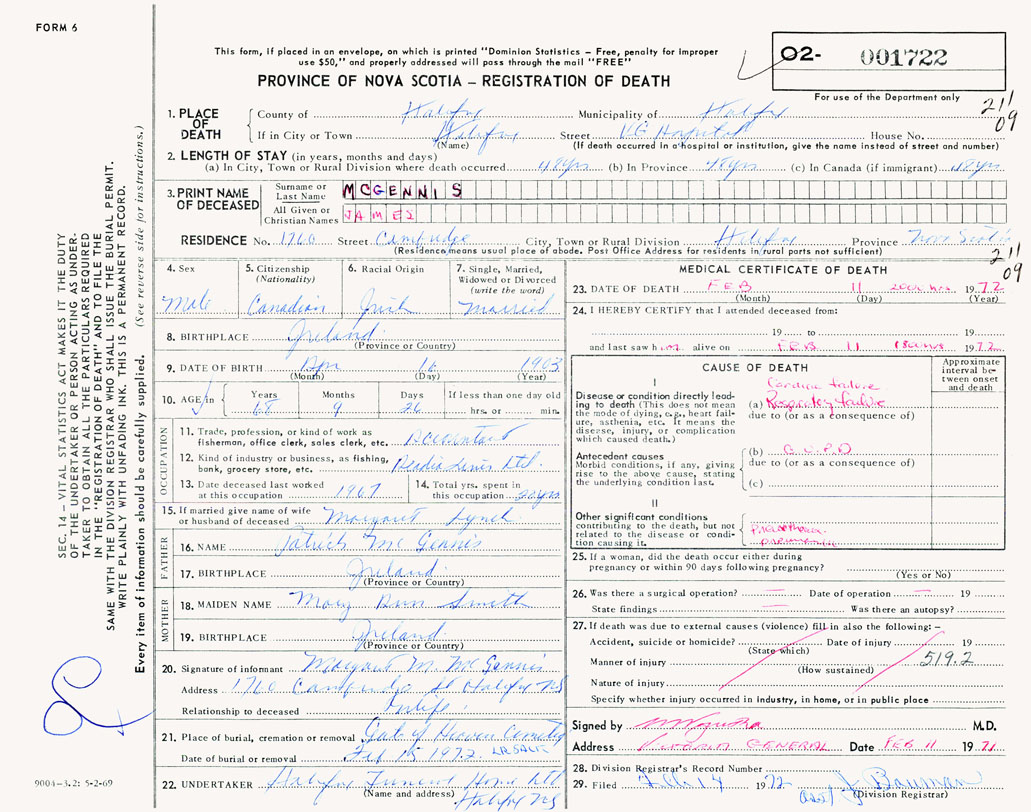 FORM 6
This form, if placed in an envelope, on which is printed "Dominion Statistics – Free, penalty for improper
use $50," and properly addressed will pass through the mail "FREE"
PROVINCE OF NOVA SCOTIA – REGISTRATION OF DEATH
02- 001722
For use of the Department only
211
09
1. PLACE OF DEATH
County of Halifax Municipality of Halifax
If in City or Town Halifax Street VG Hospital House No.
(Name) (If death occurred in a hospital or institution, give the name instead of street and number)
2. LENGTH OF STAY (in years, months and days)
(a) In City, Town or Rural Division where death occurred 48yrs (b) In Province 48yrs (c) In Canada (if immigrant) 48yrs
3. PRINT NAME OF DECEASED
Surname or Last Name MCGENNIS
All Given or Christian Names JAMES
RESIDENCE No. 1760 Street Cambridge City, Town or Rural Division Halifax Province Nova Scotia
(Residence means usual place of abode. Post Office Address for residents in rural parts not sufficient)
211
09
4. Sex
Male
5. Citizenship
(Nationality)
Canadian
6. Racial Origin
Irish
7. Single, Married,
Widowed or Divorced
(write the word)
Married
8. BIRTHPLACE Ireland
(Province or Country)
9. DATE OF BIRTH Apr 16 1903
(Month) (Day) (Year)
10. AGE in Years Months Days If less than one day old
68 9 26 hrs. or min.
OCCUPATION
11. Trade, profession, or kind of work as
fisherman, office clerk, sales clerk, etc. Accountant
12. Kind of industry or business, as fishing,
bank, grocery store, etc. Ltd.
13. Date deceased last worked
at this occupation 1967
14. Total yrs. spent in
this occupation 20yrs
15. If married give name of wife
or husband of deceased Margaret Lynch
FATHER
16. NAME Patrick McGennis
17. BIRTHPLACE Ireland
(Province or Country)
MOTHER
18. MAIDEN NAME Mary Ann Smith
19. BIRTHPLACE Ireland
(Province or Country)
20. Signature of informant Margaret M. McGennis
Address 1760 Cambridge St Halifax NS
Relationship to deceased Wife
21. Place of burial, cremation or removal Gate of Heaven Cemetery
Date of burial or removal Feb 15 1972 LR SACK
22. UNDERTAKER Halifax Funeral Home Ltd
(Name and address) Halifax NS
MEDICAL CERTIFICATE OF DEATH
23. DATE OF DEATH FEB 11 2000 hrs 1972
(Month) (Day) (Year)
24. I HEREBY CERTIFY that I attended deceased from:
19 to 19
and last saw him alive on FEB 11 1972
CAUSE OF DEATH
Approximate interval between onset and death
I
Disease or condition directly leading to death (This does not mean the mode of dying, e.g., heart failure, asthenia, etc. It means the disease, injury, or complication which caused death.)
Cardiac failure
(a) Respiratory failure
due to (or as a consequence of)
Antecedent causes
Morbid conditions, if any, giving rise to the above cause, stating the underlying condition last.
(b) C.O.P.D
due to (or as a consequence of)
(c)
II
Other significant conditions contributing to the death, but not related to the disease or condition causing it.
Pneumothorax
pneumonitis
25. If a woman, did the death occur either during
pregnancy or within 90 days following pregnancy?
(Yes or No)
26. Was there a surgical operation? — Date of operation — 19
State findings — Was there an autopsy?
27. If death was due to external causes (violence) fill in also the following: –
Accident, suicide or homicide? Date of injury 19
(State which)
Manner of injury 519.2
(How sustained)
Nature of injury
Specify whether injury occurred in industry, in home, or in public place
Signed by M.D.
Address VICTORIA GENERAL Date FEB 11 1971
28. Division Registrar's Record Number
29. Filed Feb 14 1972 asst J Bauman
(Division Registrar)
SEC. 14 – VITAL STATISTICS ACT MAKES IT THE DUTY
OF THE UNDERTAKER OR PERSON ACTING AS UNDER-
TAKER TO OBTAIN ALL THE PARTICULARS REQUIRED
IN THE "REGISTRATION OF DEATH" AND TO FILE THE
SAME WITH THE DIVISION REGISTRAR WHO SHALL ISSUE THE BURIAL PERMIT.
WRITE PLAINLY WITH UNFADING INK. THIS IS A PERMANENT RECORD.
Every item of information should be carefully supplied. (See reverse side for instructions.)
9004–3.2: 5-2-69